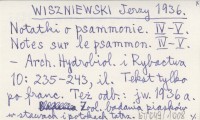 WISZNIEWSKI Jerzy 1936.
Notatki o psammonie. IV-V.
Notes sur le psammon. IV-V.
- Arch. Hydrobiol. i Rybactwa
10: 235-243, il. Tekst tylko
po franc. Też odb.: jw. 1936 a.
Zool. badania piasków
w stawach i potokach tatrz.